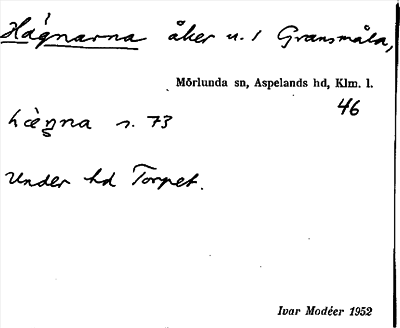 Hägnarna åker u. 1 Gransmåla,
Mörlunda sn, Aspelands hd, Klm. l.
46
hæ̀ŋna s. 73
Under hd Torpet.
Ivar Modéer 1952